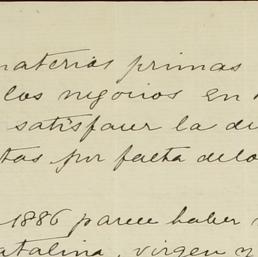 materias primas
los negocios en
satisfacer la de
tas por falta de los
1886 parece haber
atalina, virgen y